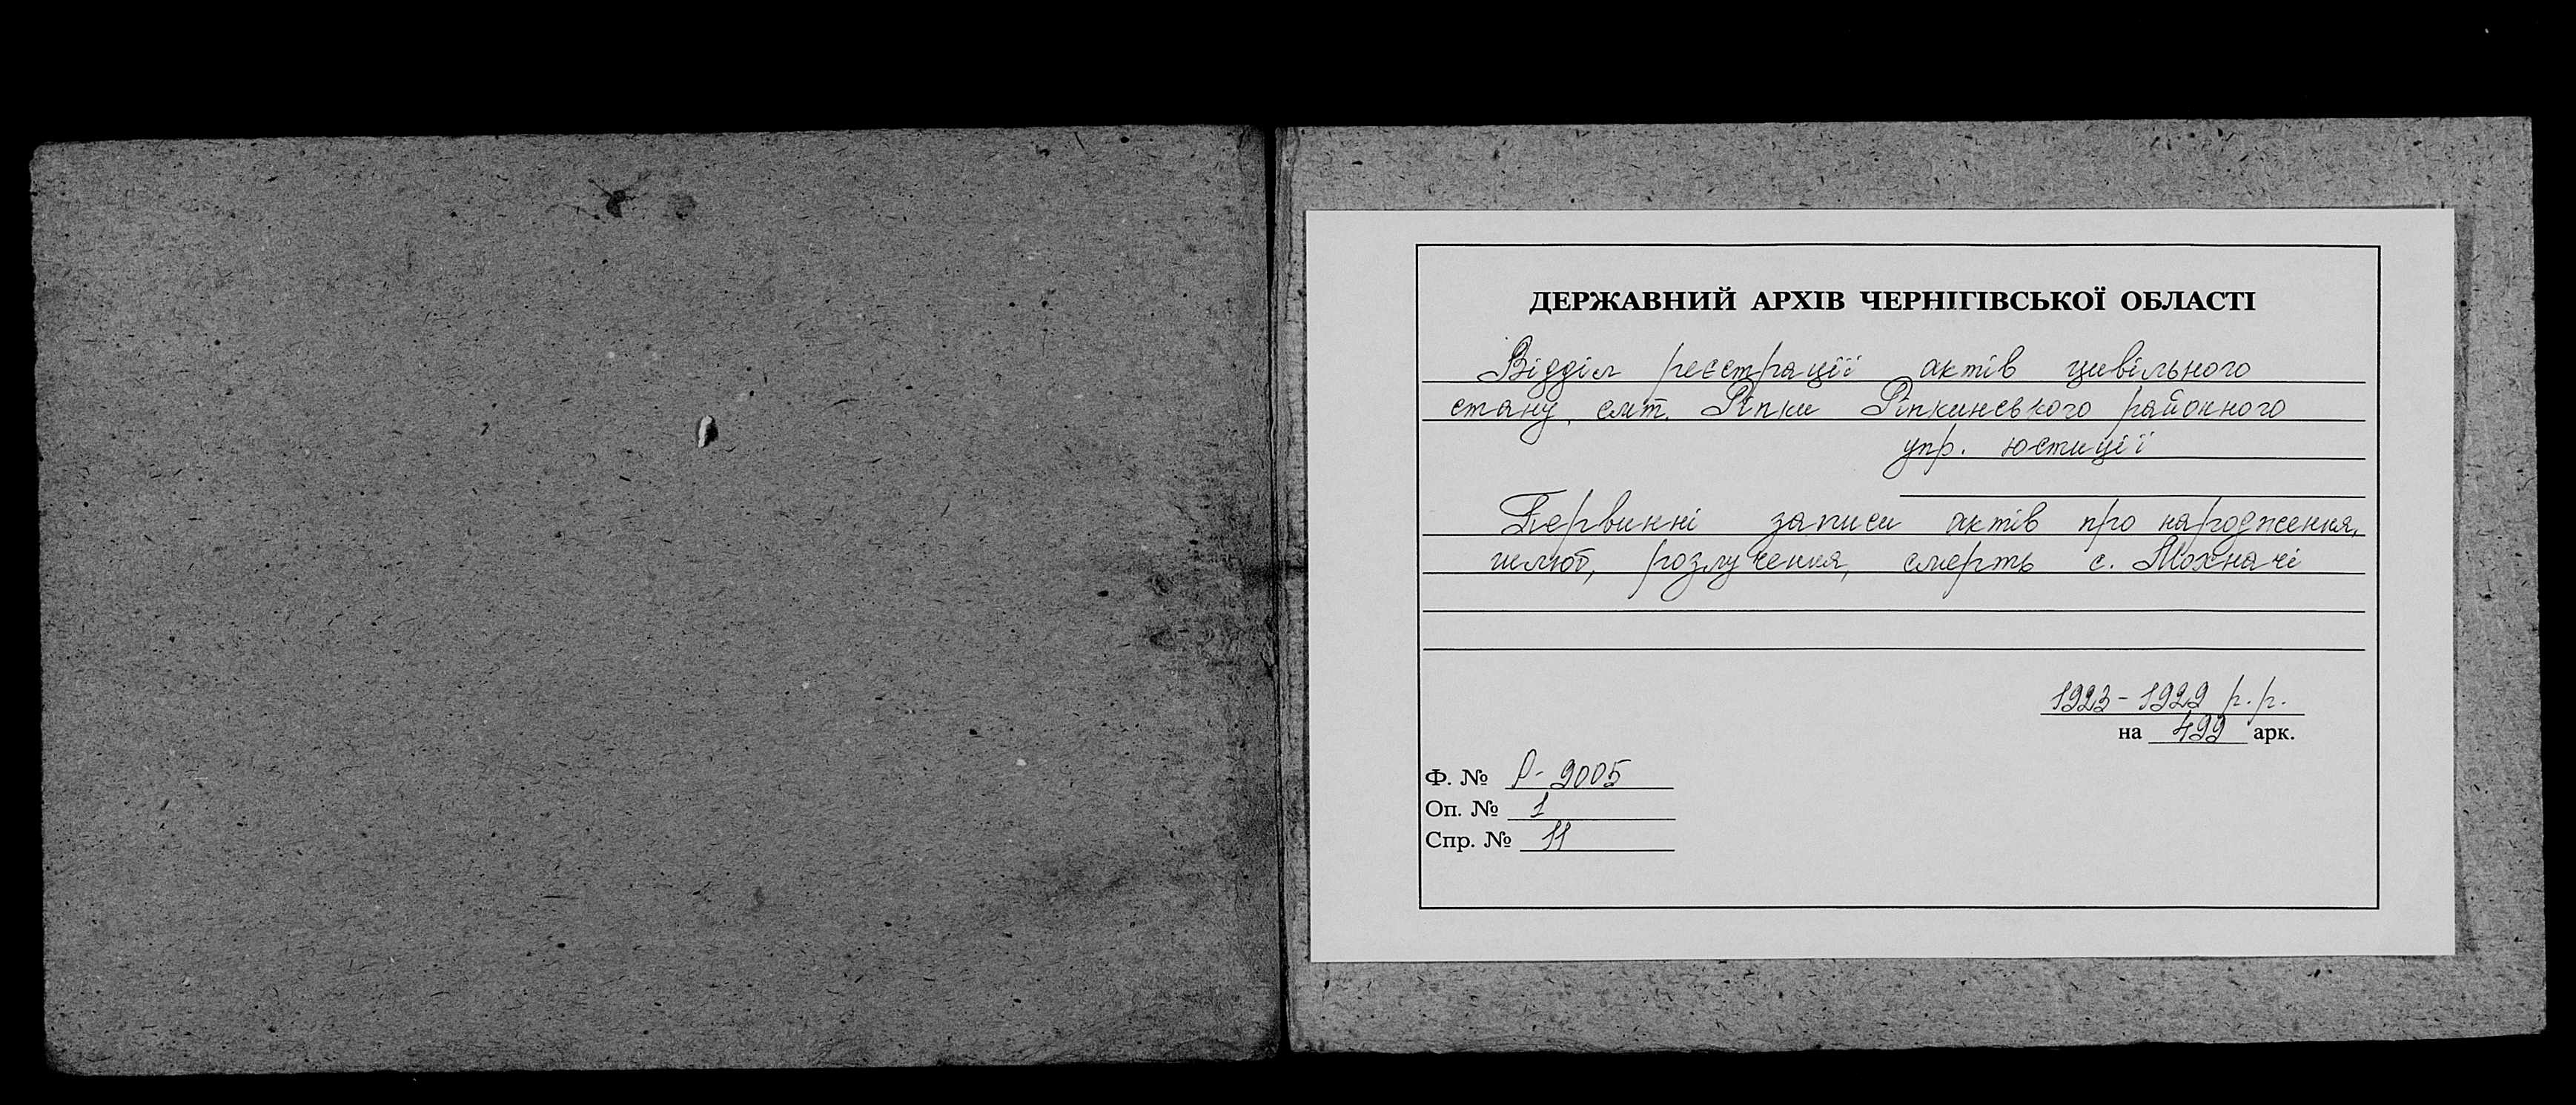 ДЕРЖАВНИЙ АРХІВ ЧЕРНІГІВСЬКОЇ ОБЛАСТІ
Відділ реєстрації актів цивільного
стану смт. Ріпки Ріпкинського районного
упр. юстиції
Первинні записи актів про народження,
шлюб, розлучення, смерть с. Мохначі
1923-1929 р.р.
на 499 арк.
Ф. № Р-9005
Оп. № 1
Спр. № 11